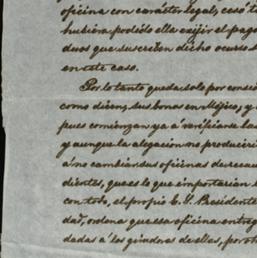 oficina con carácter legal, cesó t
hubiera, podídolo ella exijir el pago
duos que suscriben dicho ocurso
en este caso.
Por lo tanto queda solo por consi
como dicen, sus bonos en Méjico, y
pues comienzan ya á verificarse la
y aunque la alegacion no produciri
á no cambiar sus oficinas de recau
dientes, que es lo que importarian
con todo, el propio E. S. Presidente
dad, ordena que esa oficina entreg
dadas á los giradores de ellas, por